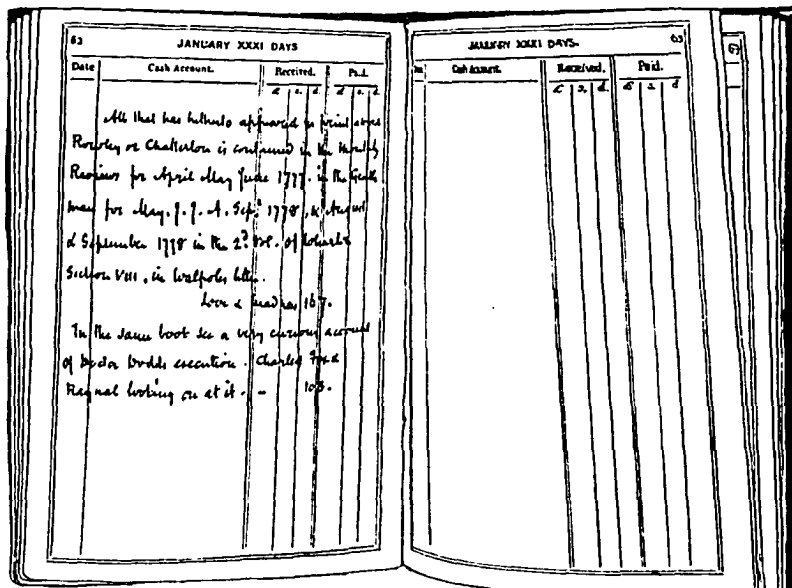 63 JANUARY XXXI DAYS
Date Cash Account. Received. Paid.
£ s. d. £ s. d.
All that has hitherto appeared in print about
Rowley or Chatterton is contained in the Monthly
Reviews for April May June 1777. in the Gentle
man for May. J. J. A. Sepr. 1778, & August
& September 1778 in the 2d. Vol. of
Section VIII, in Walpoles letter.
Love & Madness 167.
In the same book see a very curious account
of Doctor Dodds execution. Charles Fox &
Raynal looking on at it. — 103.
JANUARY XXXI DAYS. 63
Cash Account. Received. Paid.
£ s. d. £ s. d.